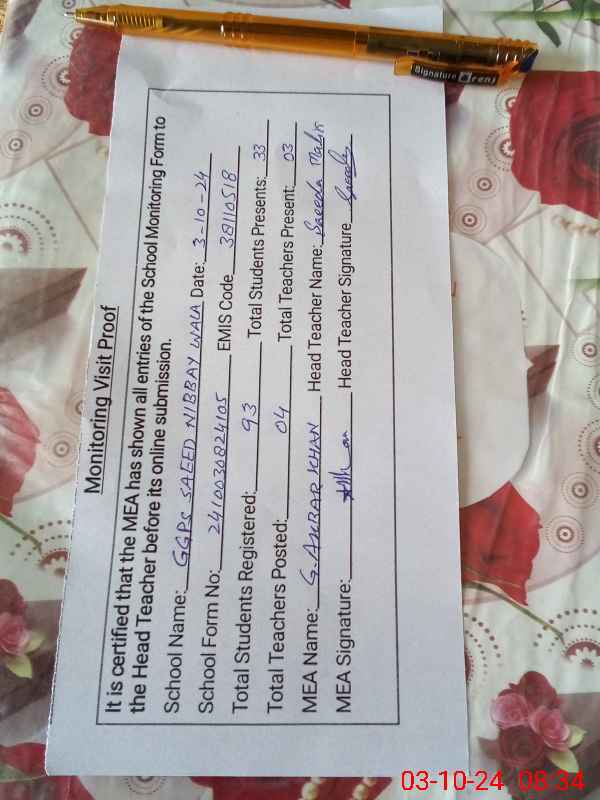 Monitoring Visit Proof
It is certified that the MEA has shown all entries of the School Monitoring Form to
the Head Teacher before its online submission.
School Name: GGPS SAEED NIBBAY WALA Date: 3-10-24
School Form No: 2410030824105 EMIS Code 38110518
Total Students Registered: 93 Total Students Presents: 33
Total Teachers Posted: 04 Total Teachers Present: 03
MEA Name: G. AKBAR KHAN Head Teacher Name: Saeeda Malik
MEA Signature: Head Teacher Signature Saeeda
Signature
03-10-24 08:34